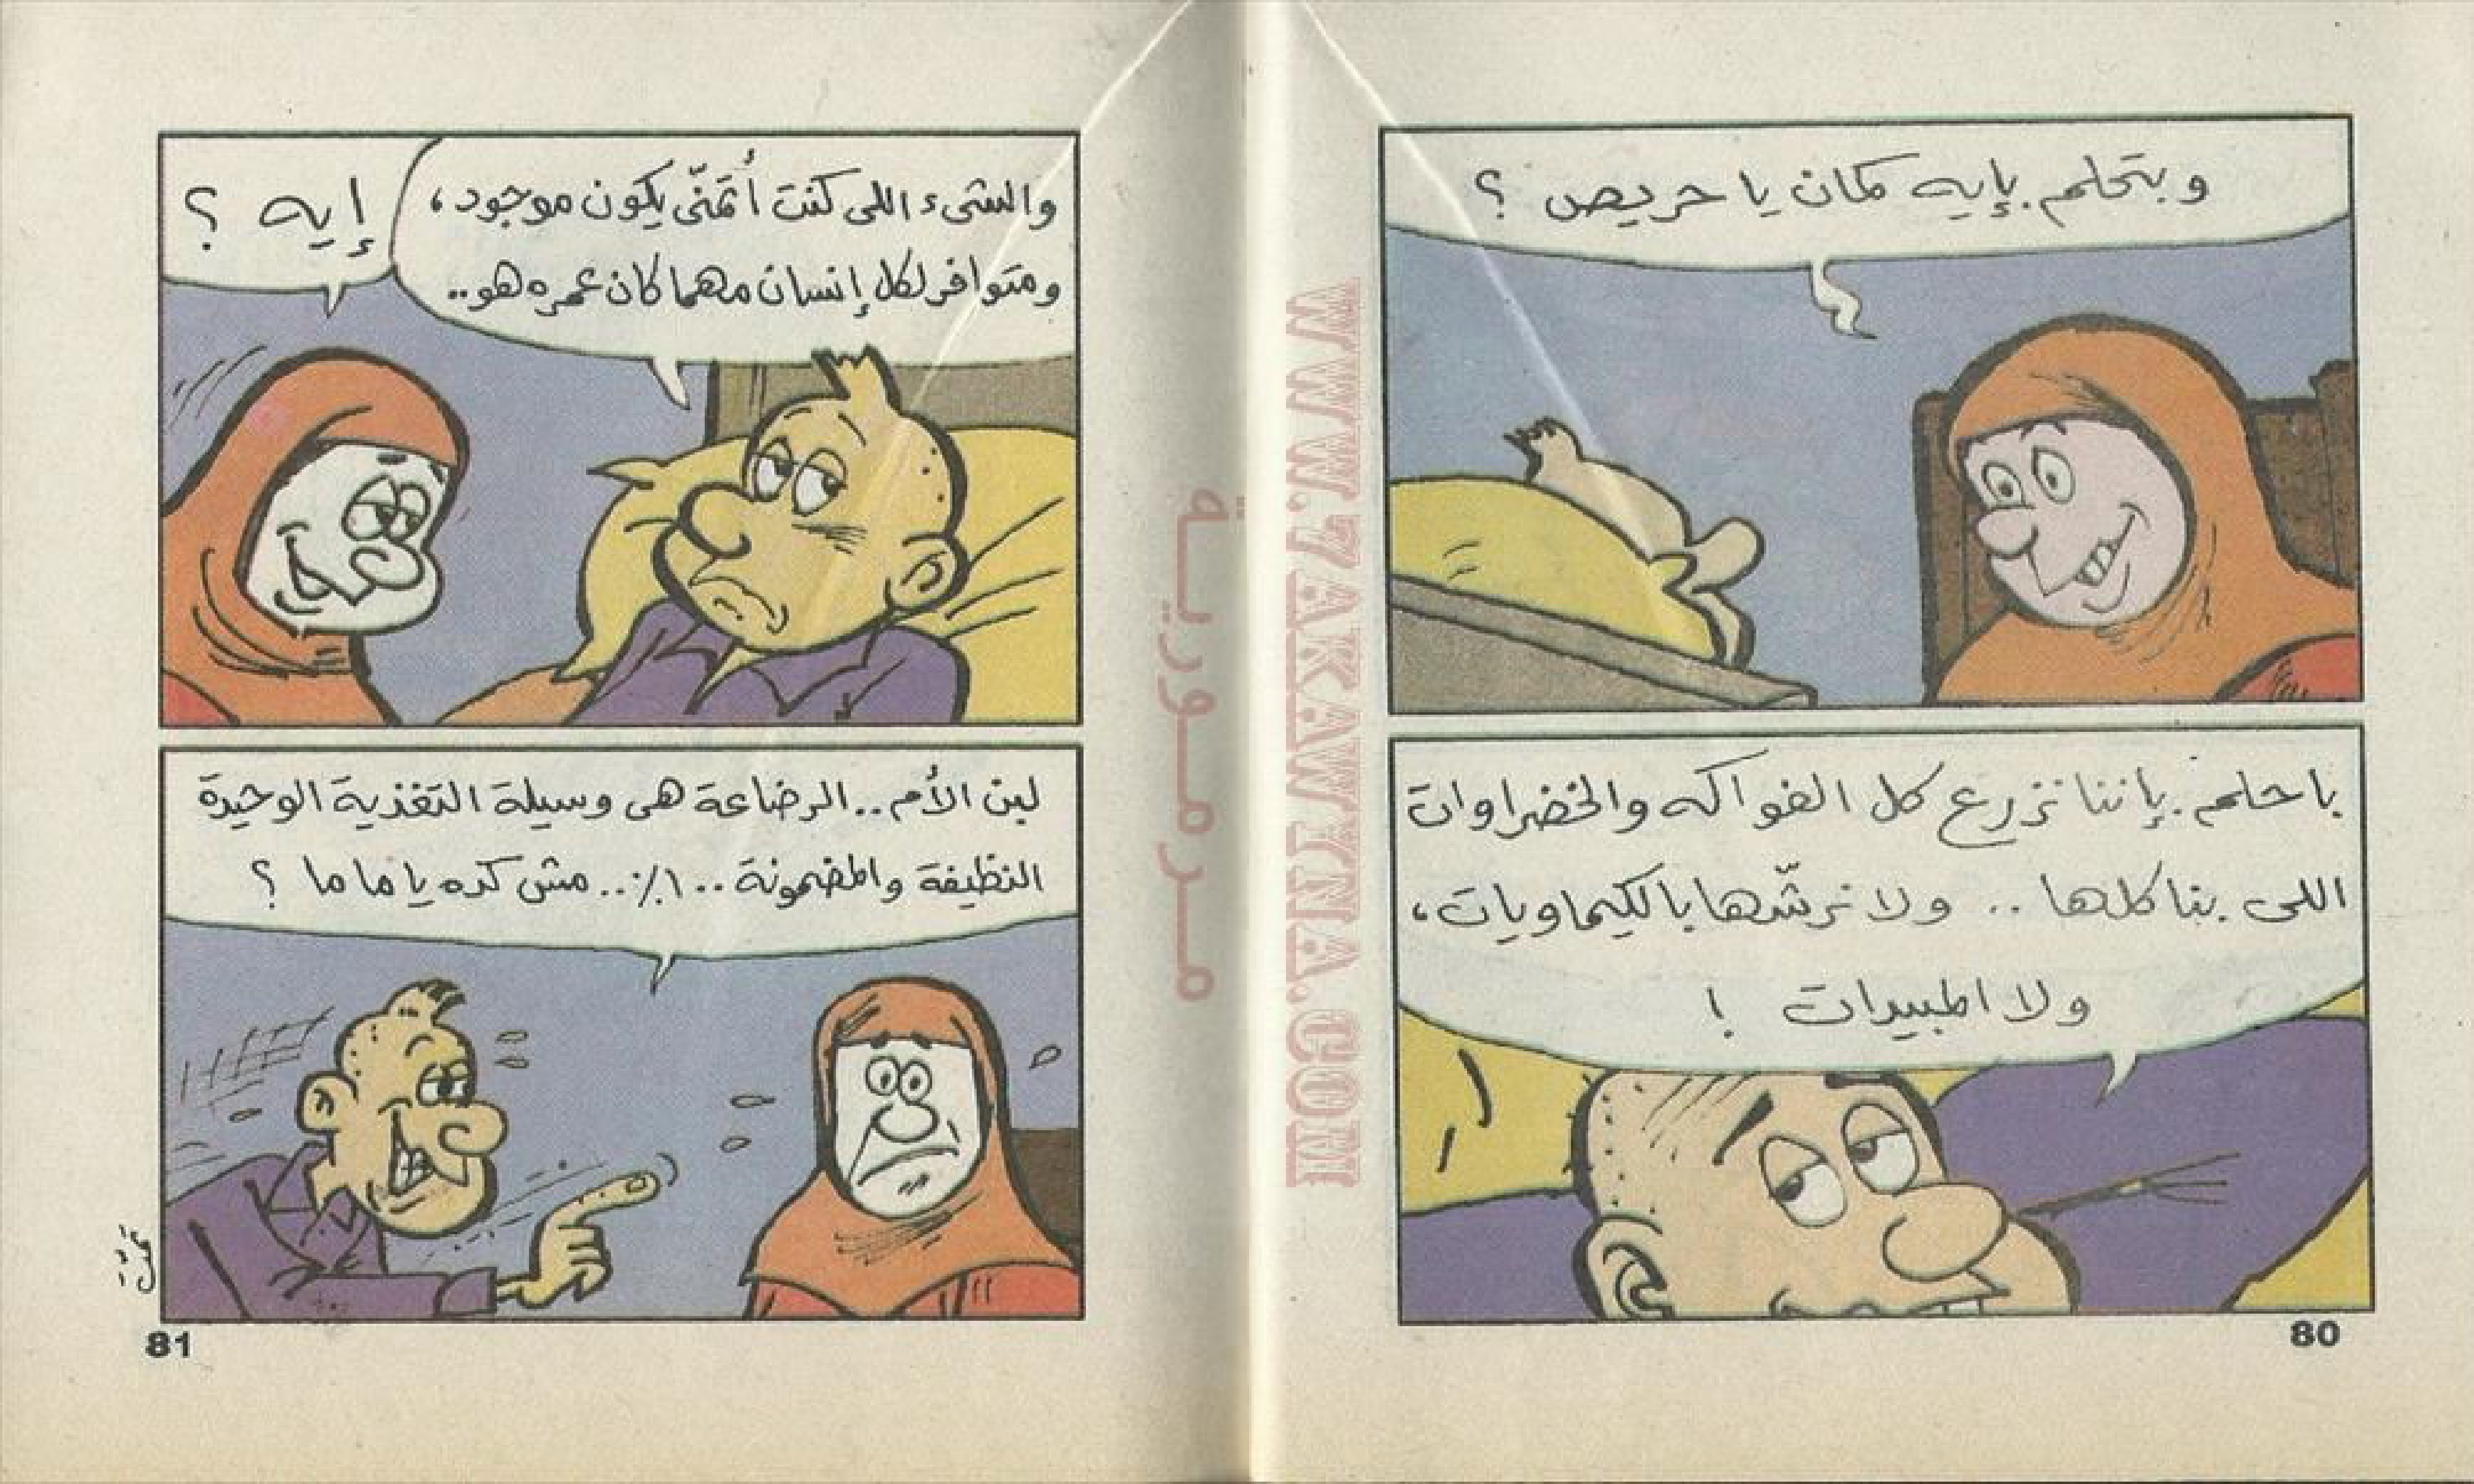 وبتحلم بإيه كمان يا حريص ؟
باحلم بإننا نزرع كل الفواكه والخضراوات
اللى بناكلها .. ولا نرشّها بالكيماويات،
ولا المبيدات !
80
والشىء اللى كنت أتمنّى يكون موجود،
ومتوافر لكل إنسان مهما كان عمره هو..
إيه ؟
لبن الأُم .. الرضاعة هى وسيلة التغذية الوحيدة
النظيفة والمضمونة ١٠٠٪.. مش كده يا ماما ؟
81
WWW.7AKAWYNA.COM
مرمورية